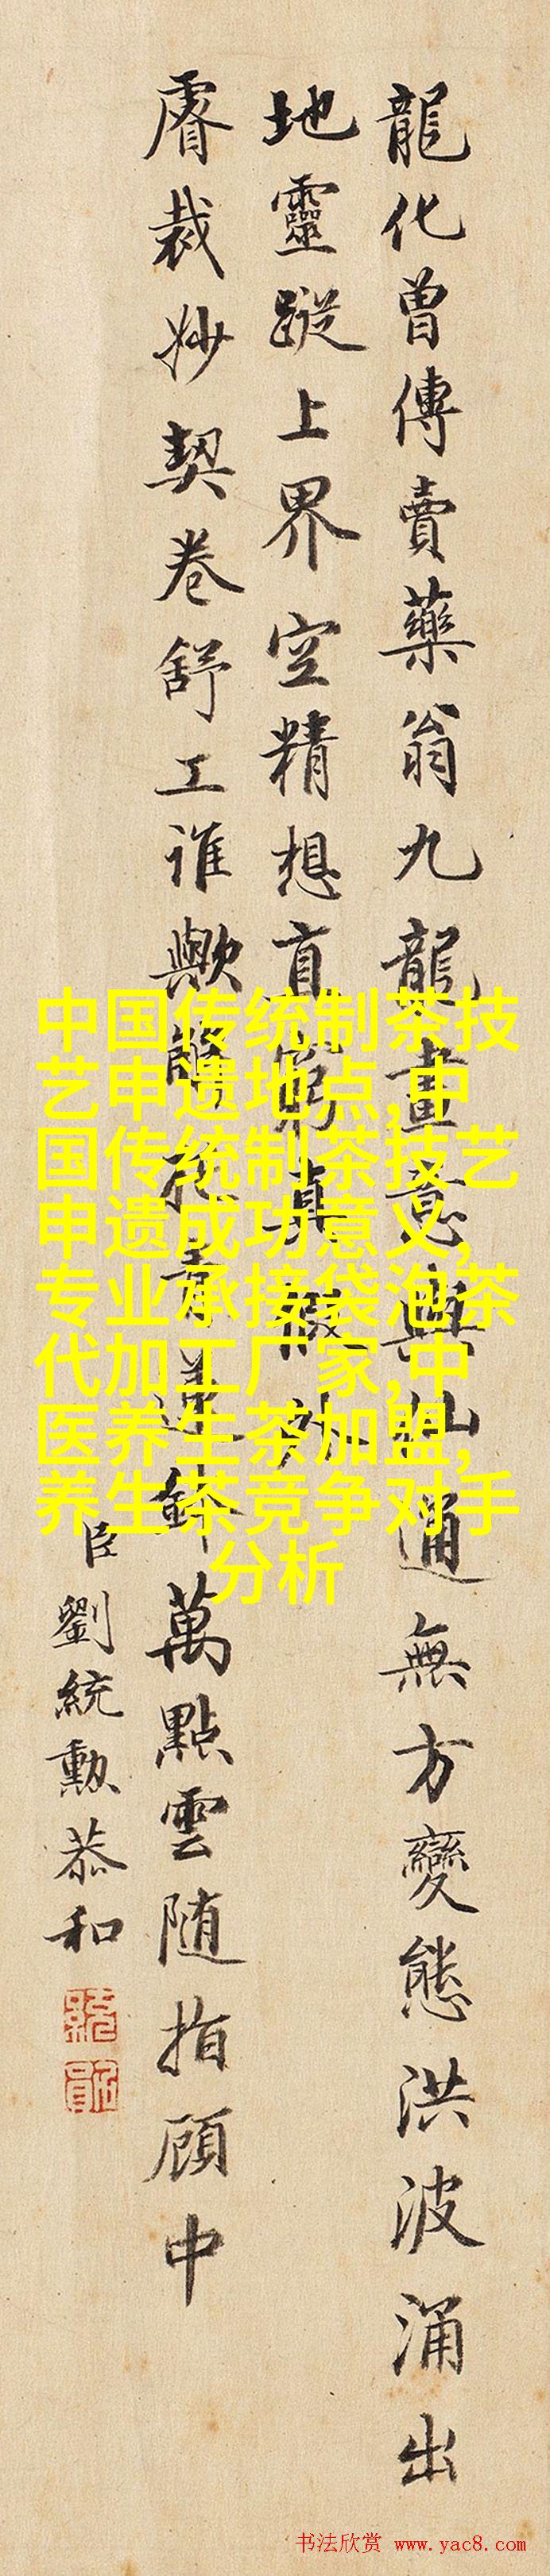 龍化曾傳賣藥翁九龍畫意與仙通無方變態洪波涌出
地靈蹤上界空精想直窮真假外
睿裁妙契卷舒工誰歟能
萬點雲隨指顧中
臣劉統勳恭和
中国传统制茶技
艺申遗地点,中
国传统制茶技艺
申遗成功意义,
专业承接袋泡茶
代加工厂家,中
医养生茶加盟,
养生茶竞争对手
分析
书法欣赏 www.yac8.com